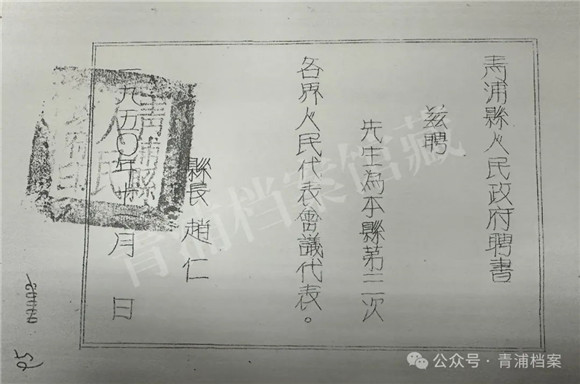 青浦縣人民政府聘書
兹聘
先生為本縣第三次
各界人民代表會議代表。
縣長 趙仁
一九五〇年十二月 日
青浦縣人民
青浦档案馆藏
公众号·青浦档案